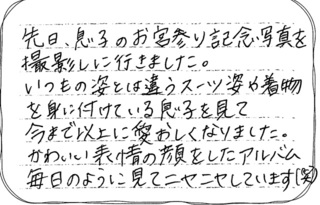 先日、息子のお宮参り記念写真を
撮影しに行きました。
いつもの姿とは違うスーツ姿や着物
を身に付けている息子を見て
今まで以上に愛おしくなりました。
かわいい表情の顔をしたアルバム
毎日のように見てニヤニヤしています(笑)